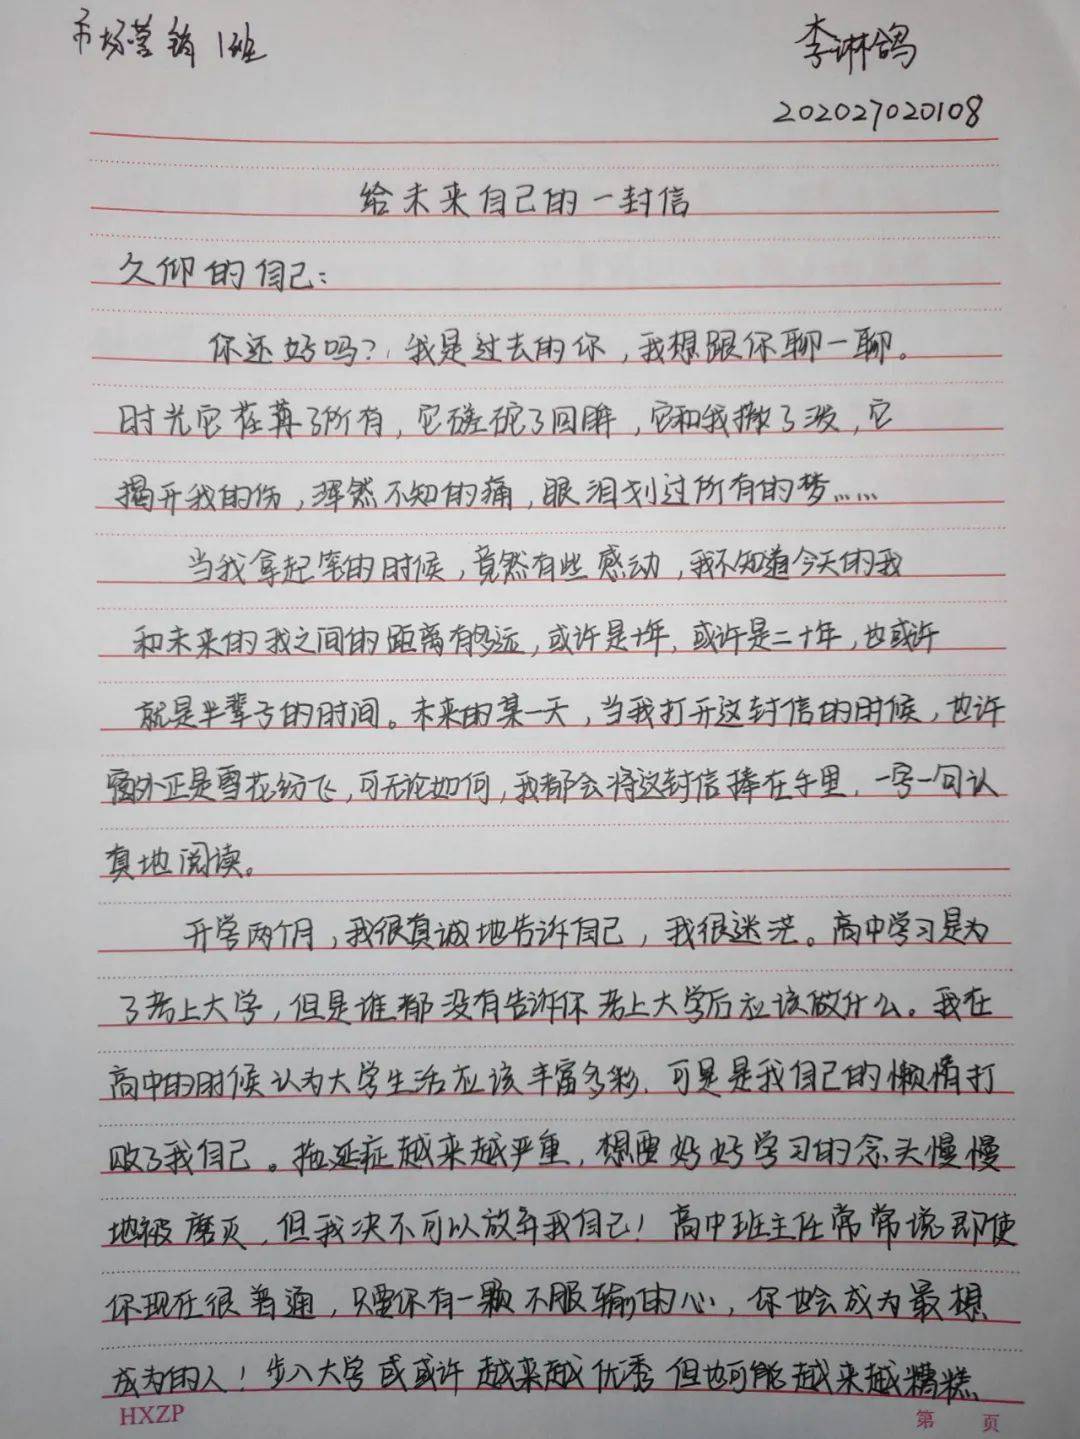 市场营销1班
李琳鸽
202027020108
给未来自己的一封信
久仰的自己：
你还好吗？我是过去的你，我想跟你聊一聊。
时光它荏苒了所有，它磋砣了回眸，它和我撒了泼，它
揭开我的伤，浑然不知的痛，眼泪划过所有的梦……
当我拿起笔的时候，竟然有些感动，我不知道今天的我
和未来的我之间的距离有多远，或许是十年，或许是二十年，也或许
就是半辈子的时间。未来的某一天，当我打开这封信的时候，也许
窗外正是雪花纷飞，可无论如何，我都会将这封信捧在手里，一字一句认
真地阅读。
开学两个月，我很真诚地告诉自己，我很迷茫。高中学习是为
了考上大学，但是谁都没有告诉你考上大学后应该做什么。我在
高中的时候认为大学生活应该丰富多彩，可是是我自己的懒惰打
败了我自己。拖延症越来越严重，想要好好学习的念头慢慢
地被磨灭，但我决不可以放弃我自己！高中班主任常常说即使
你现在很普通，只要你有一颗不服输的心，你也会成为最想
成为的人！步入大学或或许越来越优秀但也可能越来越糟糕、
HXZP
第 页